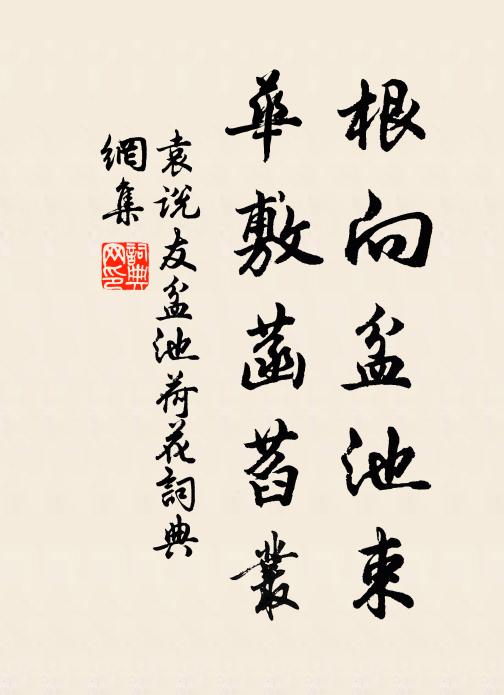 根向盆池束
華敷菡萏叢
袁說友盆池荷花詞典
網集
詞典
网印